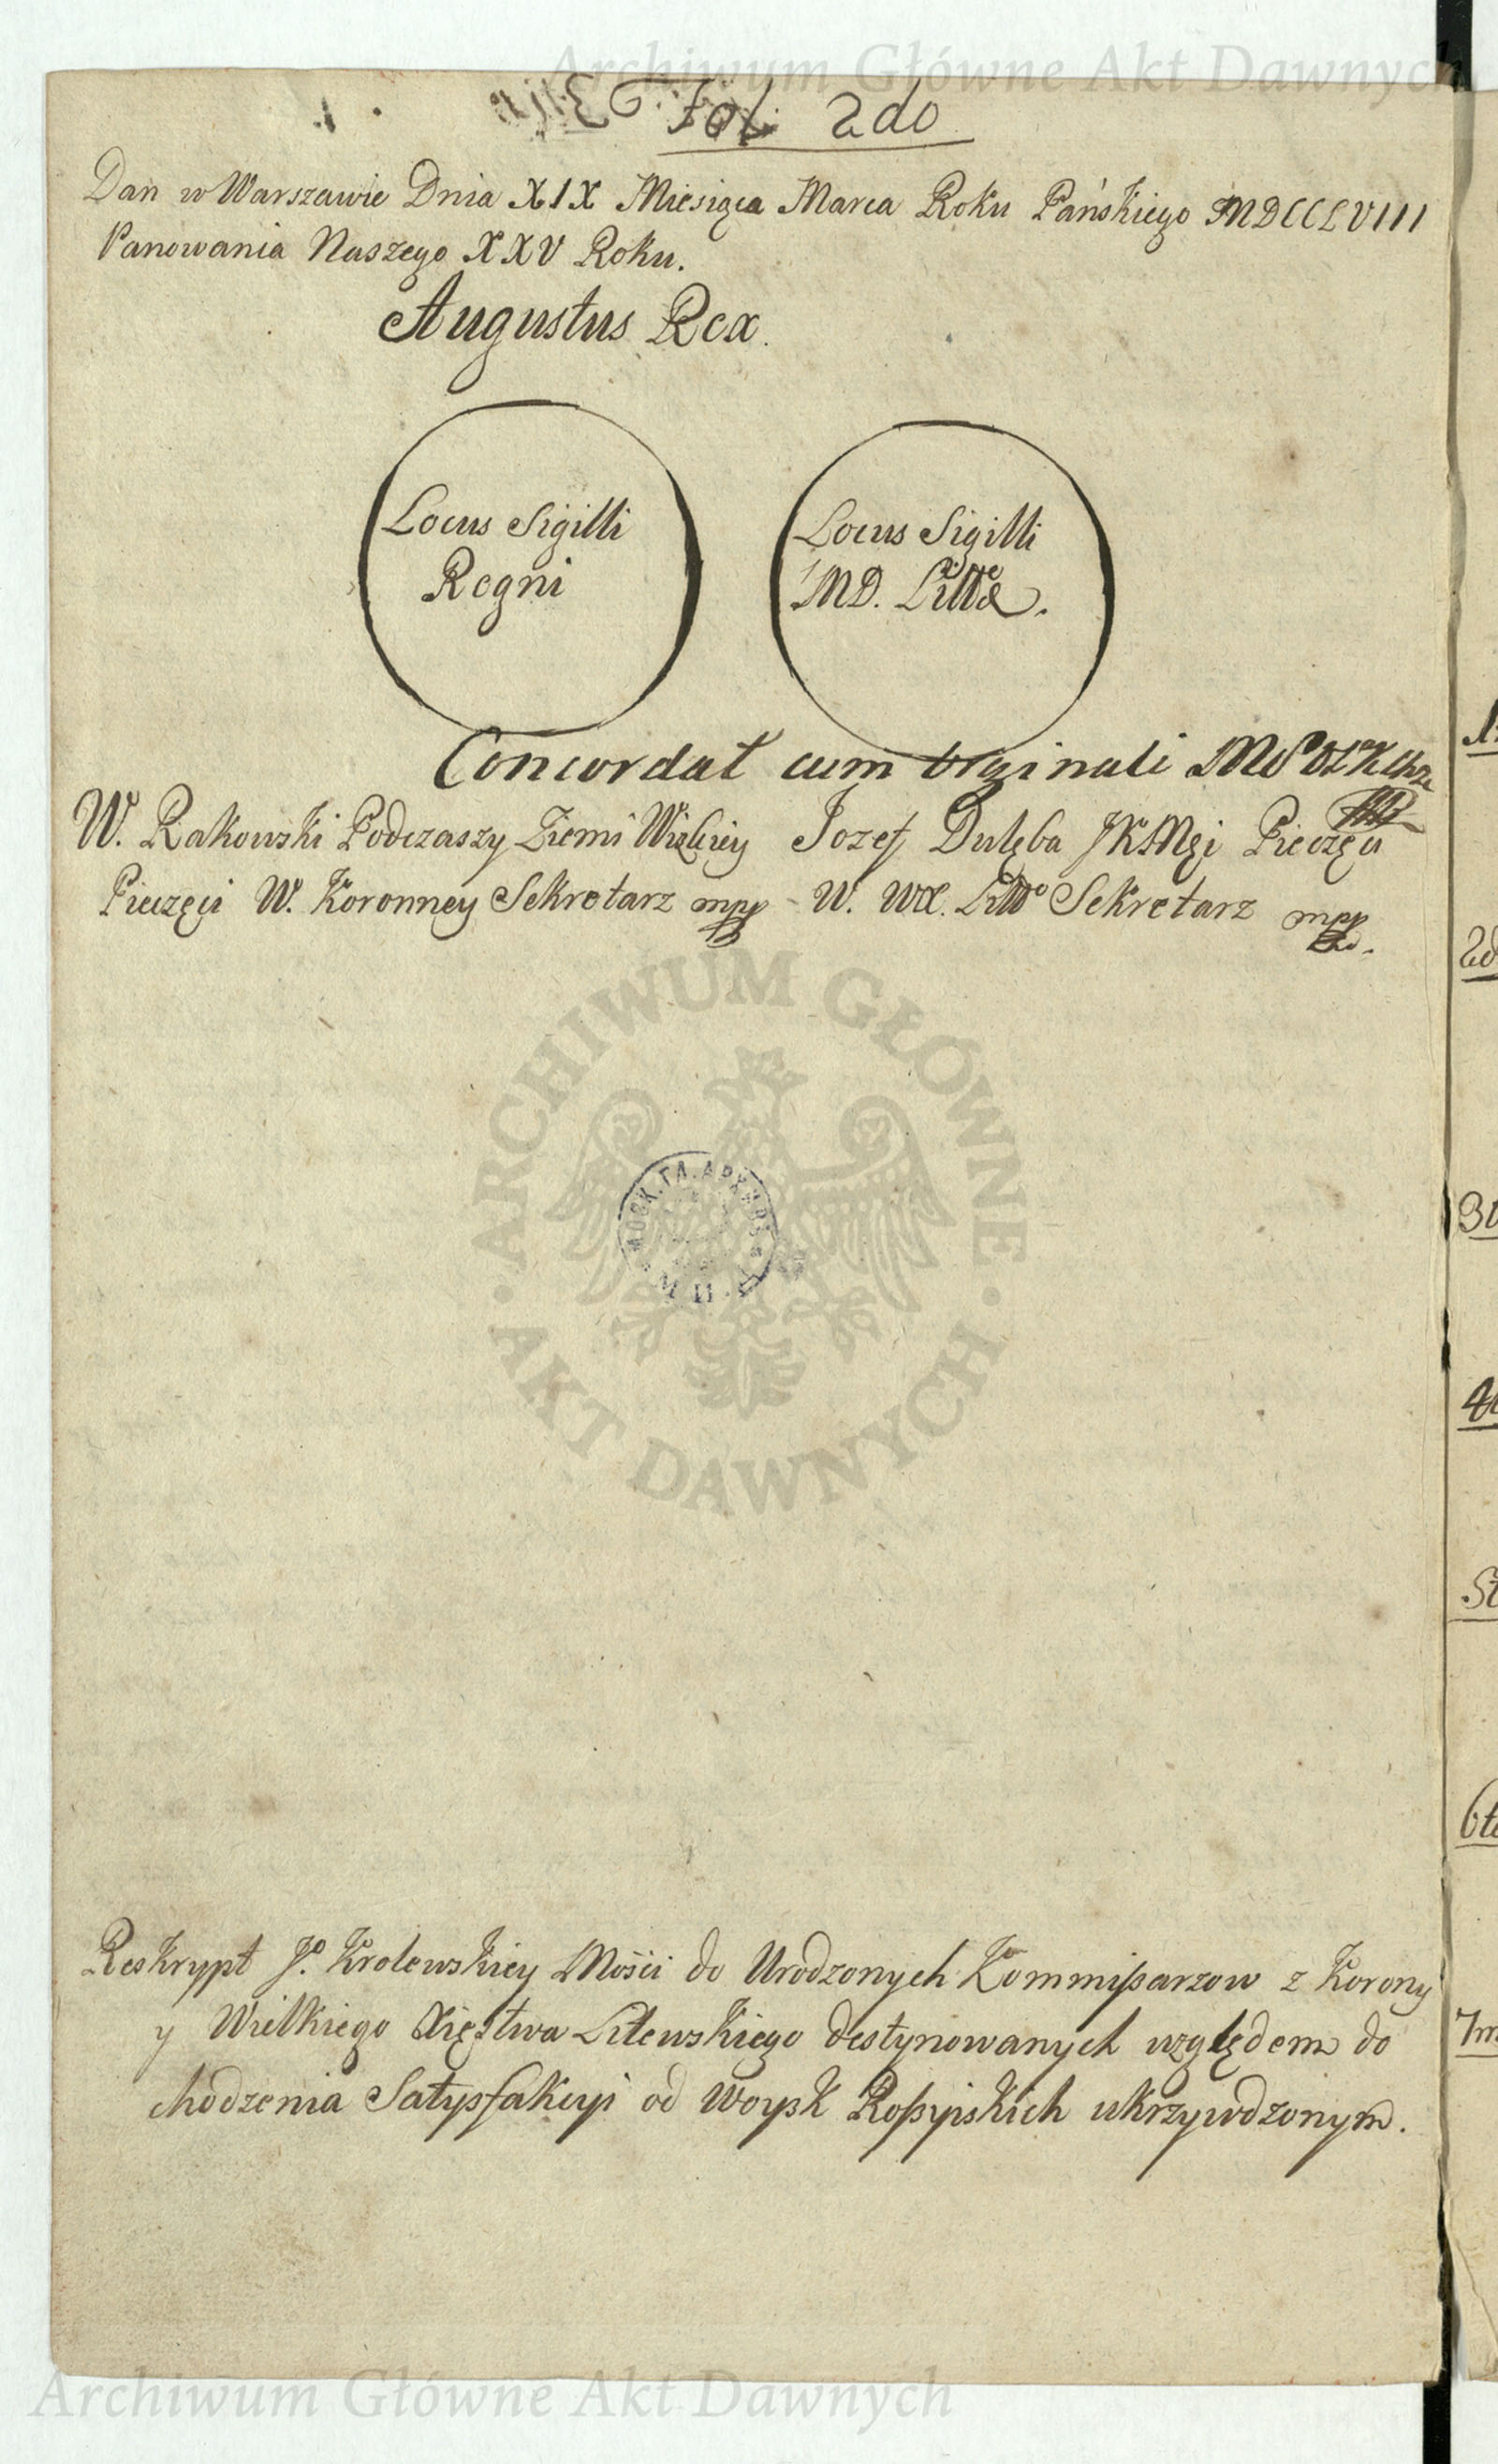 Archiwum Główne Akt Dawnych
Fol: 2do
Dan w Warszawie Dnia XIX Miesiąca Marca Roku Pańskiego MDCCLVIII
Panowania Naszego XXV Roku.
Augustus Rex.
Locus Sigilli
Regni
Locus Sigilli
MD. Littæ.
Concordat cum orginali
W. Rakowski Podczaszy Ziemi Wizkiey
Pieczęci W. Koronney Sekretarz mpp
Jozef Dulęba JKMści Pieczęci
W. WX. Litto Sekretarz mpp.
ARCHIWUM GŁÓWNE
AKT DAWNYCH
МОСК. ГЛ. АРХИВЪ
Reskrypt J. Krolewskiey Mości do Urodzonych Kommißarzow z Korony
y Wielkiego Xięstwa Litewskiego destynowanych względem do
chodzenia Satysfakcyi od Woysk Roßyiskich ukrzywdzonym.
Archiwum Główne Akt Dawnych